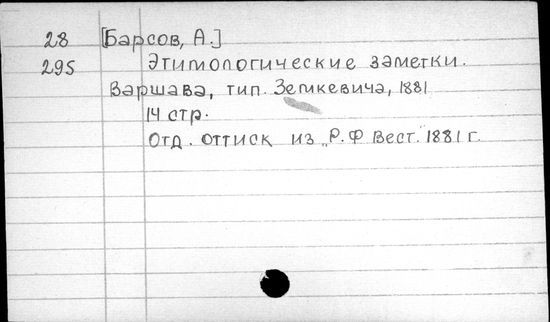 28 [Барсов, А.]
295 Этимологические заметки.
Варшава, тип. Земкевича, 1881
14 стр.
Отд. оттиск из „Р. Ф Вест. 1881 г.